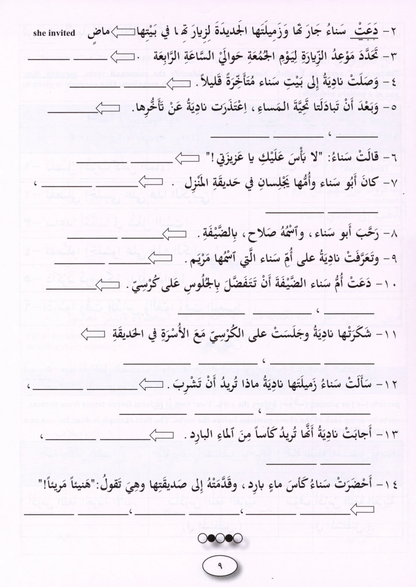 ٢- دَعَتْ سَناءُ جارَتَها وَزَميلَتَها الجَديدَةَ لِزِيارَتِها في بَيْتِها ⇐ ماضٍ she invited
٣- تَحَدَّدَ مَوْعِدُ الزِّيارَةِ لِيَوْمِ الجُمُعَةِ حَوالَيْ السَّاعَةِ الرَّابِعَة .
٤- وَصَلَتْ نادِيَةُ إلى بَيْتِ سَناء مُتَأَخِّرَةً قَليلاً.
٥- وَبَعْدَ أَنْ تَبادَلَتا تَحِيَّةَ المَساءِ، اِعْتَذَرَت نادِيَةُ عَنْ تَأَخُّرِها.
، ،
٦- قالَتْ سَناءُ: "لا بَأْسَ عَلَيْكِ يا عَزيزَتي!"
٧- كانَ أَبُو سَناء وأُمُّها يَجْلِسانِ في حَديقَةِ المَنْزِل . ،
٨- رَحَّبَ أَبو سَناء، واسْمُهُ صَلاح، بِالضَّيْفَةِ .
٩- وتَعَرَّفَتْ نادِيَةُ على أُمِّ سَناء الَّتي اسْمُها مَرْيَم .
١٠- دَعَتْ أُمُّ سَناء الضَّيْفَةَ أَنْ تَتَفَضَّلَ بِالجُلُوسِ عَلى كُرْسِيّ .
، ،
١١- شَكَرَتْها نادِيَةُ وجَلَسَتْ على الكُرْسِيّ مَعَ الأُسْرَةِ في الحَديقَةِ
،
١٢- سَأَلَتْ سَناءُ زَميلَتَها نادِيَةُ ماذا تُريدُ أَنْ تَشْرِبَ . ،
،
١٣- أَجابَتْ نادِيَةُ أَنَّها تُريدُ كَأْساً مِنَ الماءِ البارِد . ،
١٤- أَحْضَرَتْ سَناءُ كَأْسَ ماءٍ بارِد، وقَدَّمَتْهُ إلى صَديقَتِها وهِيَ تَقولُ: "هَنيئاً مَريئاً!"
، ،
٩